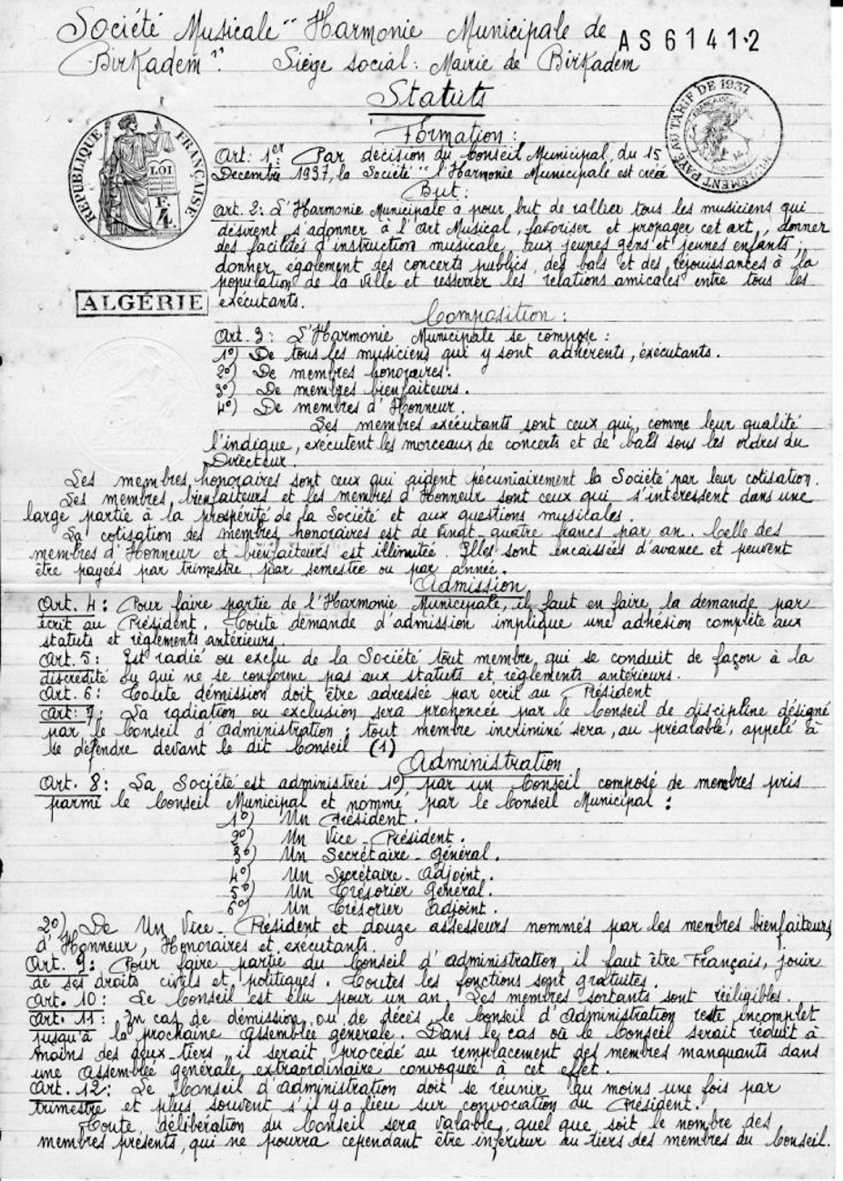 Société Musicale "Harmonie Municipale de
Birkadem". Siège social: Mairie de Birkadem
AS 6141.2
Statuts
TIMBRE PAYÉ AU TARIF DE 1937
RÉPUBLIQUE FRANÇAISE
LOI
F.
4
Formation:
Art: 1er: Par décision du Conseil Municipal, du 15
Décembre 1937, la Société "l'Harmonie Municipale est créée
But:
Art. 2: L'Harmonie Municipale a pour but de rallier tous les musiciens qui
désirent s'adonner à l'Art Musical, favoriser et propager cet art, donner
des facilités d'instruction musicale, aux jeunes gens et jeunes enfants;
donner également des concerts publics, des bals et des réjouissances à la
population de la ville et resserrer les relations amicales entre tous les
exécutants.
ALGÉRIE
Composition:
Art. 3: L'Harmonie Municipale se compose:
1º) De tous les musiciens qui y sont adhérents, exécutants.
2º) De membres honoraires.
3º) De membres bienfaiteurs.
4º) De membres d'Honneur.
Les membres exécutants sont ceux qui, comme leur qualité
l'indique, exécutent les morceaux de concerts et de bals sous les ordres du
Directeur.
Les membres honoraires sont ceux qui aident pécuniairement la Société par leur cotisation.
Les membres bienfaiteurs et les membres d'Honneur sont ceux qui s'intéressent dans une
large partie à la prospérité de la Société et aux questions musicales.
La cotisation des membres honoraires est de vingt-quatre francs par an. Celle des
membres d'Honneur et bienfaiteurs est illimitée. Elles sont encaissées d'avance et peuvent
être payées par trimestre, par semestre ou par année.
Admission
Art. 4: Pour faire partie de l'Harmonie Municipale, il faut en faire la demande par
écrit au Président. Toute demande d'admission implique une adhésion complète aux
statuts et règlements antérieurs.
Art. 5: Est radié ou exclu de la Société tout membre qui se conduit de façon à la
discrédité ou qui ne se conforme pas aux statuts et règlements antérieurs.
Art. 6: Toute démission doit être adressée par écrit au Président
Art: 7: La radiation ou exclusion sera prononcée par le Conseil de discipline désigné
par le Conseil d'Administration; tout membre incriminé sera, au préalable, appelé à
se défendre devant le dit Conseil (1)
Administration
Art. 8: La Société est administrée 1º) par un Conseil composé de membres pris
parmi le Conseil Municipal et nommé par le Conseil Municipal:
1º) Un Président.
2º) Un Vice-Président.
3º) Un Secrétaire-Général.
4º) Un Secrétaire-Adjoint.
5º) Un Trésorier Général.
6º) Un Trésorier Adjoint.
2º) De Un Vice-Président et douze assesseurs nommés par les membres bienfaiteurs,
d'Honneur, Honoraires et exécutants.
Art. 9: Pour faire partie du Conseil d'administration, il faut être Français, jouir
de ses droits civils et politiques. Toutes les fonctions sont gratuites.
Art. 10: Le Conseil est élu pour un an. Les membres sortants sont rééligibles.
Art. 11: En cas de démission ou de décès le Conseil d'Administration reste incomplet
jusqu'à la prochaine Assemblée générale. Dans le cas où le Conseil serait réduit à
moins des deux-tiers, il serait procédé au remplacement des membres manquants dans
une Assemblée générale extraordinaire convoquée à cet effet.
Art. 12: Le Conseil d'Administration doit se réunir au moins une fois par
trimestre et plus souvent s'il y a lieu sur convocation du Président.
Toute délibération du Conseil sera valable, quel que soit le nombre des
membres présents, qui ne pourra cependant être inférieur au tiers des membres du Conseil.